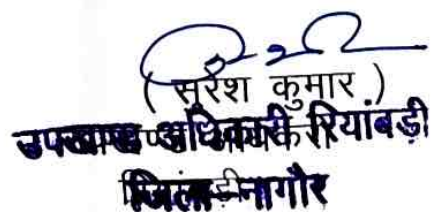 ( सुरेश कुमार )
उपखण्ड अधिकारी रियांबड़ी
जिला-नागौर